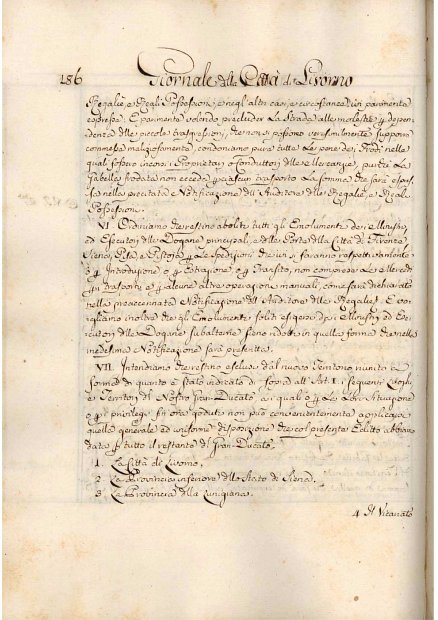 186 Giornale della Città di Livorno
Regalie, e Reali Possessioni, e negl'altri casi, e circostanze ivi parimente
espresse. E parimente volendo precluder la Strada alle molestie
denza delle piccole trasgressioni, che non si possono verisimilmente supporre
commesse maliziosamente, condoniamo pure tutte le pene de nelle
quali fossero incorsi i Proprietarj, o Conduttori delle Mercanzie, purchè la
Gabella frodata non ecceda p. ciascun trasporto la somma che sarà espres
sa nella precitata Notificazione dell'Auditore delle Regalie, e Reali
Possessioni.
VI. Ordiniamo che restino aboliti tutti gli Emolumenti dei Ministri,
ed Esecutori delle Dogane principali, e delle Porte della Città di Firenze
Siena, Pisa, e Pistoja p. le Spedizioni che vi si faranno rispettivamente
o p. Introduzione o p. Estrazione o p. Transito, non comprese le mercedi
p. trasporti e p. alcune altre operazioni manuali, come sarà dichiarato
nella preaccennata Notificazione dell'Auditore delle Regalie. E vo-
gliamo inoltre che gli Emolumenti soliti esigersi dai Ministri ed Ese
cutori delle Dogane subalterne sieno ridotti in quella forma che nella
medesima Notificazione sarà prescritta.
VII. Intendiamo che restino esclusi dal nuovo Territorio riunito a
forma di quanto è stato indicato di sopra all'Art. I. i seguenti Luoghi
e Territorj del Nostro Gran-Ducato, ai quali o p. la loro situazione
o p. i privilegj fin ora goduti non può convenientemente applicarsi
quella generale ed uniforme disposizione che col presente Editto abbiam
data p. tutto il restante del Gran-Ducato.
1. La Città di Livorno.
2. La Provincia inferiore dello Stato di Siena.
3. La Provincia della Lunigiana.
4. Il Vicariato